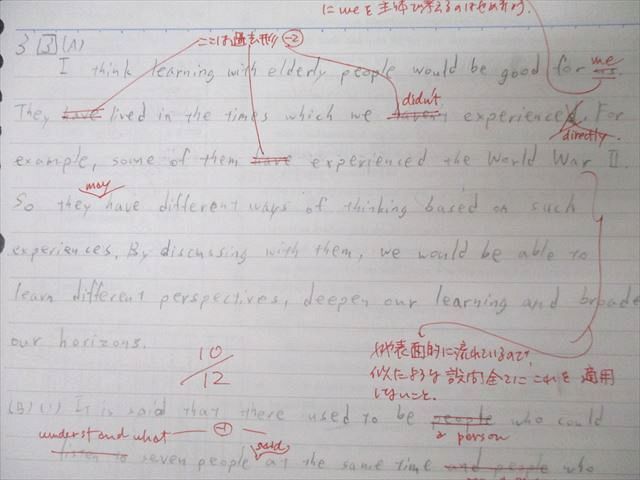 にweを主体で考えるのはやめよう.
3 3 (A)
ここは過去形 -2
I think learning with elderly people would be good for us. me
They have lived in the times which we haven't experienced. For
didn't
directly.
example, some of them have experienced the World War II.
may
So they have different ways of thinking based on such
experiences. By discussing with them, we would be able to
learn different perspectives, deepen our learning and broade
our horizons.
10/12
やや表面的に流れているので
似たような設問全てにこれを適用
しないこと.
(B) (1) It is said that there used to be people who could
a person
understand what -1 said
listen to seven people at the same time and people who